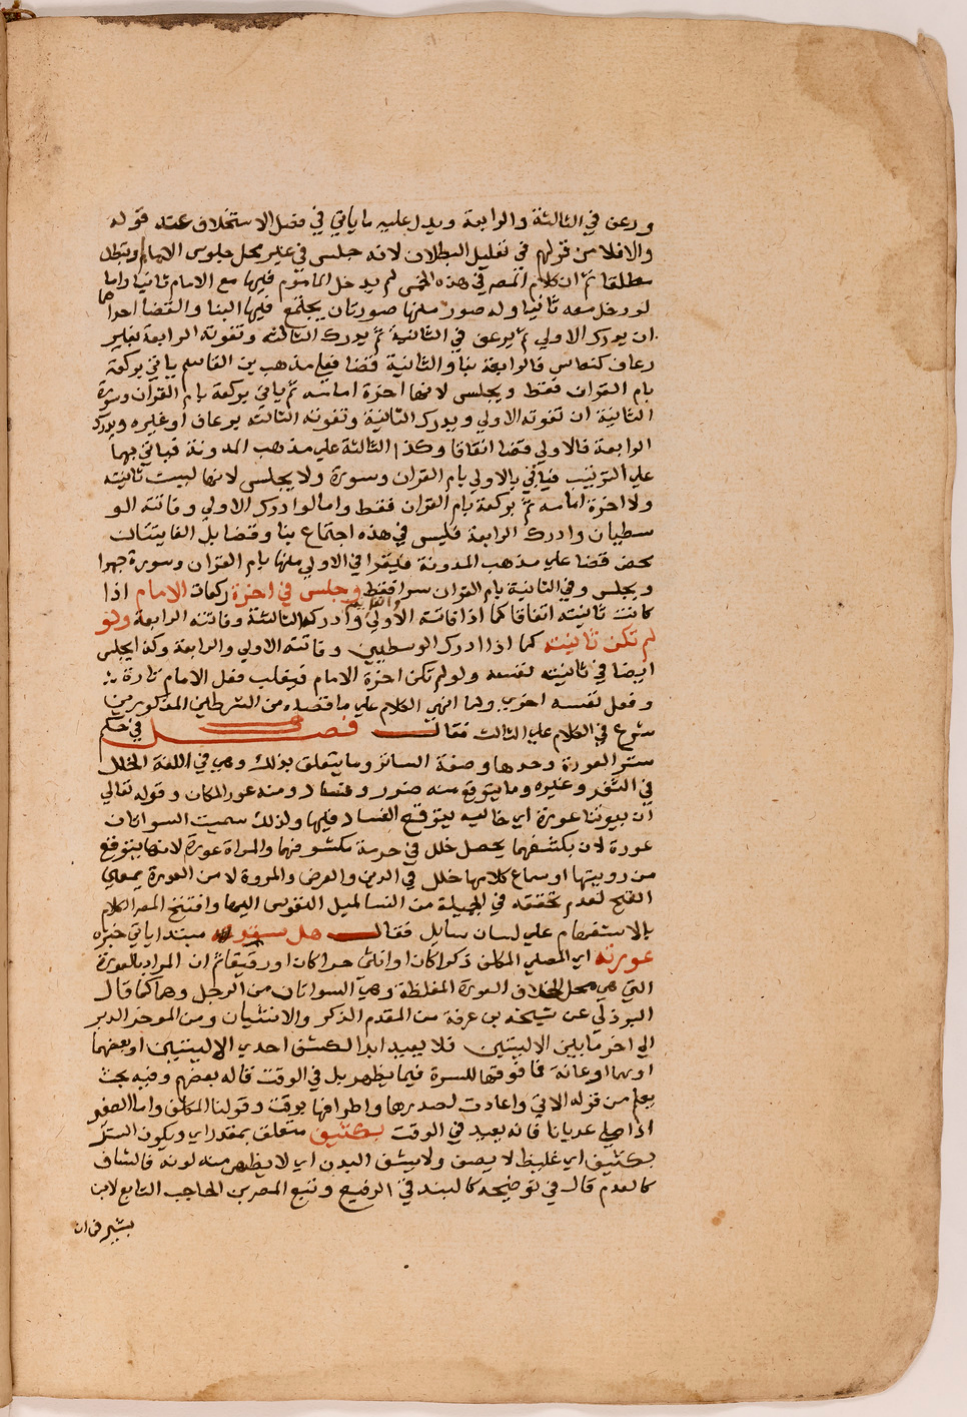 ورعف في الثالثة والرابعة ويدل عليه ما ياتي في فصل الاستخلاف عند قوله
والافلا من قولهم في تعليل البطلان لانه جلس في غير محل جلوس الامام وتبطل
مطلقا ثم ان كلام المصر في هذه الخمس لم يدخل الماموم فيها مع الامام ثانيا واما
لو دخل معه ثانيا وله صور منها صورتان يجتمع فيها البنا والقضا احداهما
ان يدرك الاولي ثم يرعف في الثانية ثم يدرك الثالثة وتفوته الرابعة بغير
رعاف كنعاس فالرابعة بنا والثانية قضا فعلي مذهب بن القاسم ياتي بركعة
بام القران فقط ويجلس لانها اخرة امامه ثم ياتي بركعة بام القران وسورة
الثانية ان تفوته الاولي ويدرك الثانية وتفوته الثالثة برعاف او غيره ويدرك
الرابعة فالاولي قضا اتفاقا وكذا الثالثة علي مذهب المدونة فياتي بهما
علي الترتيب فياتي بالاولي بام القران وسورة ولا يجلس لانها ليست ثانيته
ولا اخرة امامه ثم بركعة بام القران فقط واما لو ادرك الاولي وفاتته الو
سطيان وادرك الرابعة فليس في هذه اجتماع بنا وقضا بل الفايتتان
محض قضا علي مذهب المدونة فليقرا في الاولي منها بام القران وسورة جهرا
ويجلس وفي الثانية بام القران سرا فقط وجلس في اخرة ركعات الامام اذا
كانت ثانيته اتفاقا كما اذا فاتته الاولي وادرك الثالثة وفاتته الرابعة ولو
لم تكن ثانيته كما اذا ادرك الوسطيين وفاتته الاولي والرابعة وكذا يجلس
ايضا في ثانيته لنفسه ولو لم تكن اخرة الامام فيغلب فعل الامام تارة
وفعل نفسه اخري ولما انهي الكلام علي ما قصده من الشرطين المذكورين
شرع في الكلام علي الثالث فقال فصل في حكم
ستر العورة وحدها وصفة الساتر وما يتعلق بذلك وهي في اللغة الخلل
في الثغر وغيره وما يتوقع منه ضرر وفساد ومنه عور المكان وقوله تعالي
ان بيوتنا عورة اي خالية يتوقع الفساد فيها ولذلك سميت السواتان
عورة لان بكشفهما يحصل خلل في حرمة مكشوفهما والمراة عورة لانها يتوقع
من رويتها او سماع كلامها خلل في الدين والعرض والمروة لا من العورة بمعني
القبح لعدم تحققه في الجميلة من النسا لميل النفوس اليها وافتتح المصر الكلام
بالاستفهام علي لسان سايل فقال هل ستر مبتدا ياتي خبره
عورته اي المصلي المكلف ذكرا كان او انثي حرا كان او رقيقا ثم ان المراد بالعورة
التي هي محل الخلاف العورة المغلظة وهي السواتان من الرجل وهما كما قال
البرذلي عن شيخه بن عرفة من المقدم الذكر والانثيان ومن الموخر الدبر
الي اخر ما بين الاليتين فلا يعيد ابدا لكشف احدي الاليتين او بعضهما
او هما او عانة فما فوقها للسرة فيما يظهر بل في الوقت قاله بعضهم وفيه بحث
يعلم من قوله الاتي واعادت لصدرها واطرافها بوقت وقولنا المكلف واما الصغير
اذا صلي عريانا فانه يعيد في الوقت بكثيف متعلق بمقدر اي ويكون الستر
بكثيف اي غليظ لا يصف ولا يشف البدن اي لا يظهر منه لونه فالشاف
كالعدم قال في توضيحه كالبندقي الرفيع وتبع المصر بن الحاجب التابع لابن
بشير في ان